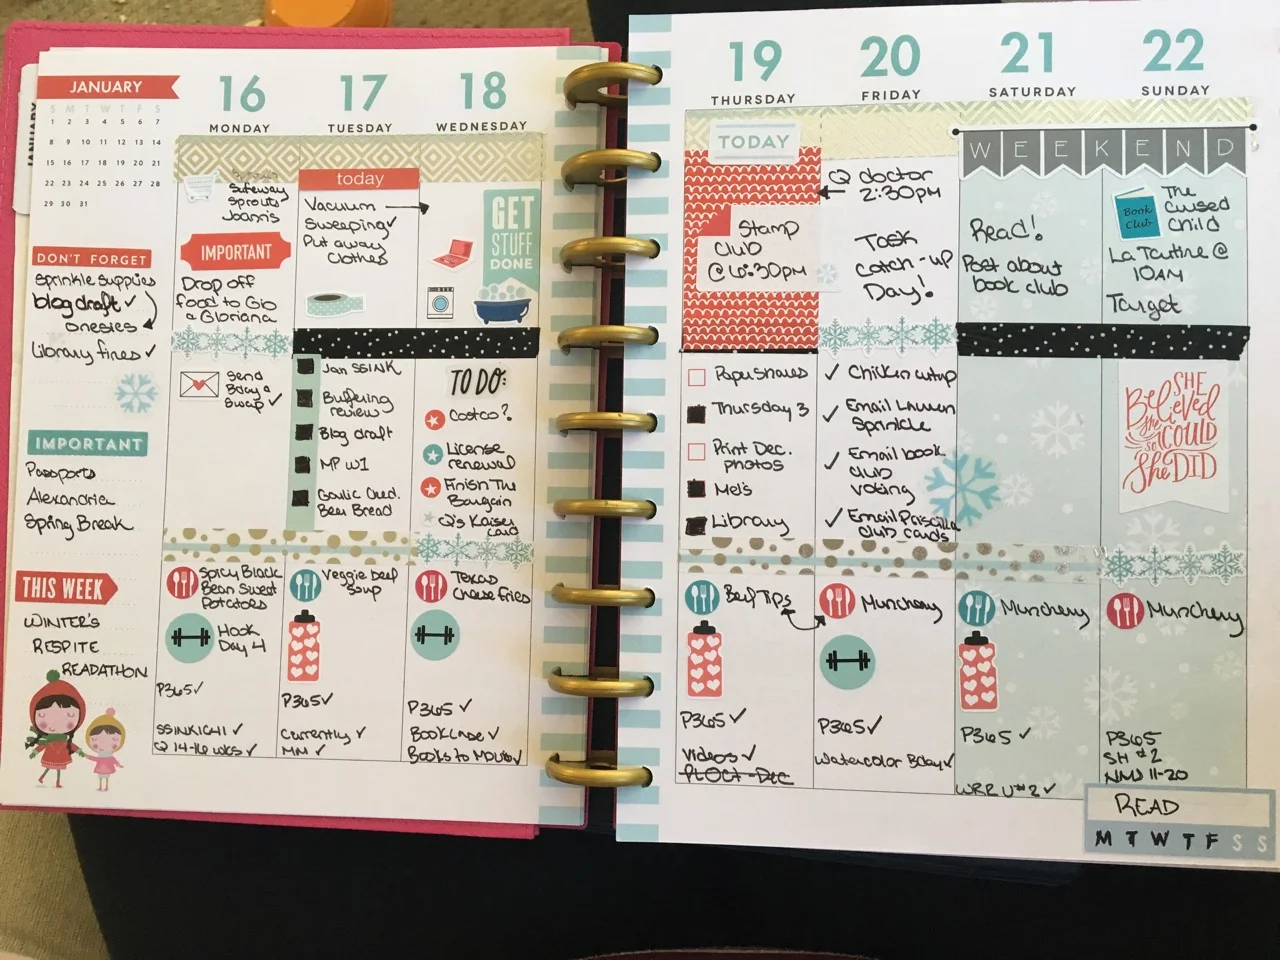 JANUARY
S M T W T F S
1 2 3 4 5 6 7
8 9 10 11 12 13 14
15 16 17 18 19 20 21
22 23 24 25 26 27 28
29 30 31
DON'T FORGET
Sprinkle supplies
blog draft ✓
onesies
Library fines ✓
IMPORTANT
Passports
Alexandria
Spring Break
THIS WEEK
WINTER'S
RESPITE
READATHON
16
MONDAY
Safeway
Sprouts
Joann's
IMPORTANT
Drop off
food to Gio
a Gloriana
Send
Bday a
Swap ✓
Spicy Black
Bean Sweet
Potatoes
Hook
Day 4
P365 ✓
SSINKICHI ✓
Q 14-16 wks ✓
17
TUESDAY
today
Vacuum
Sweeping ✓
Put away
clothes
Jan SSINK
Buffering
review
Blog draft
MP W1
Garlic Ched.
Beer Bread
Veggie beef
soup
P365 ✓
Currently ✓
MM ✓
18
WEDNESDAY
GET
STUFF
DONE
TO DO:
Costco?
License
renewal
Finish The
Bargain
Q's Kaiser
card
Texas
Cheese fries
P365 ✓
Books to Movie ✓
19
THURSDAY
TODAY
Stamp
Club
@ 6:30PM
Papershares
Thursday 3
Print Dec.
photos
Mel's
Library
Beef Tips
P365 ✓
Videos ✓
20
FRIDAY
Q doctor
2:30PM
Task
catch-up
Day!
✓ Chicken cutup
✓ Email Lauren
Sprinkle
✓ Email book
club
voting
✓ Email Priscilla
club cards
Munchery
P365 ✓
Watercolor Bday ✓
21
SATURDAY
WEEKEND
Read!
Post about
book club
Munchery
P365 ✓
WRR U#2 ✓
22
SUNDAY
Book
Club
The
Cursed
Child
La Tartine @
10AM
Target
SHE
Believed
she
COULD
so
She DID
Munchery
P365
SH #2
NMJ 11-20
READ
M T W T F S S